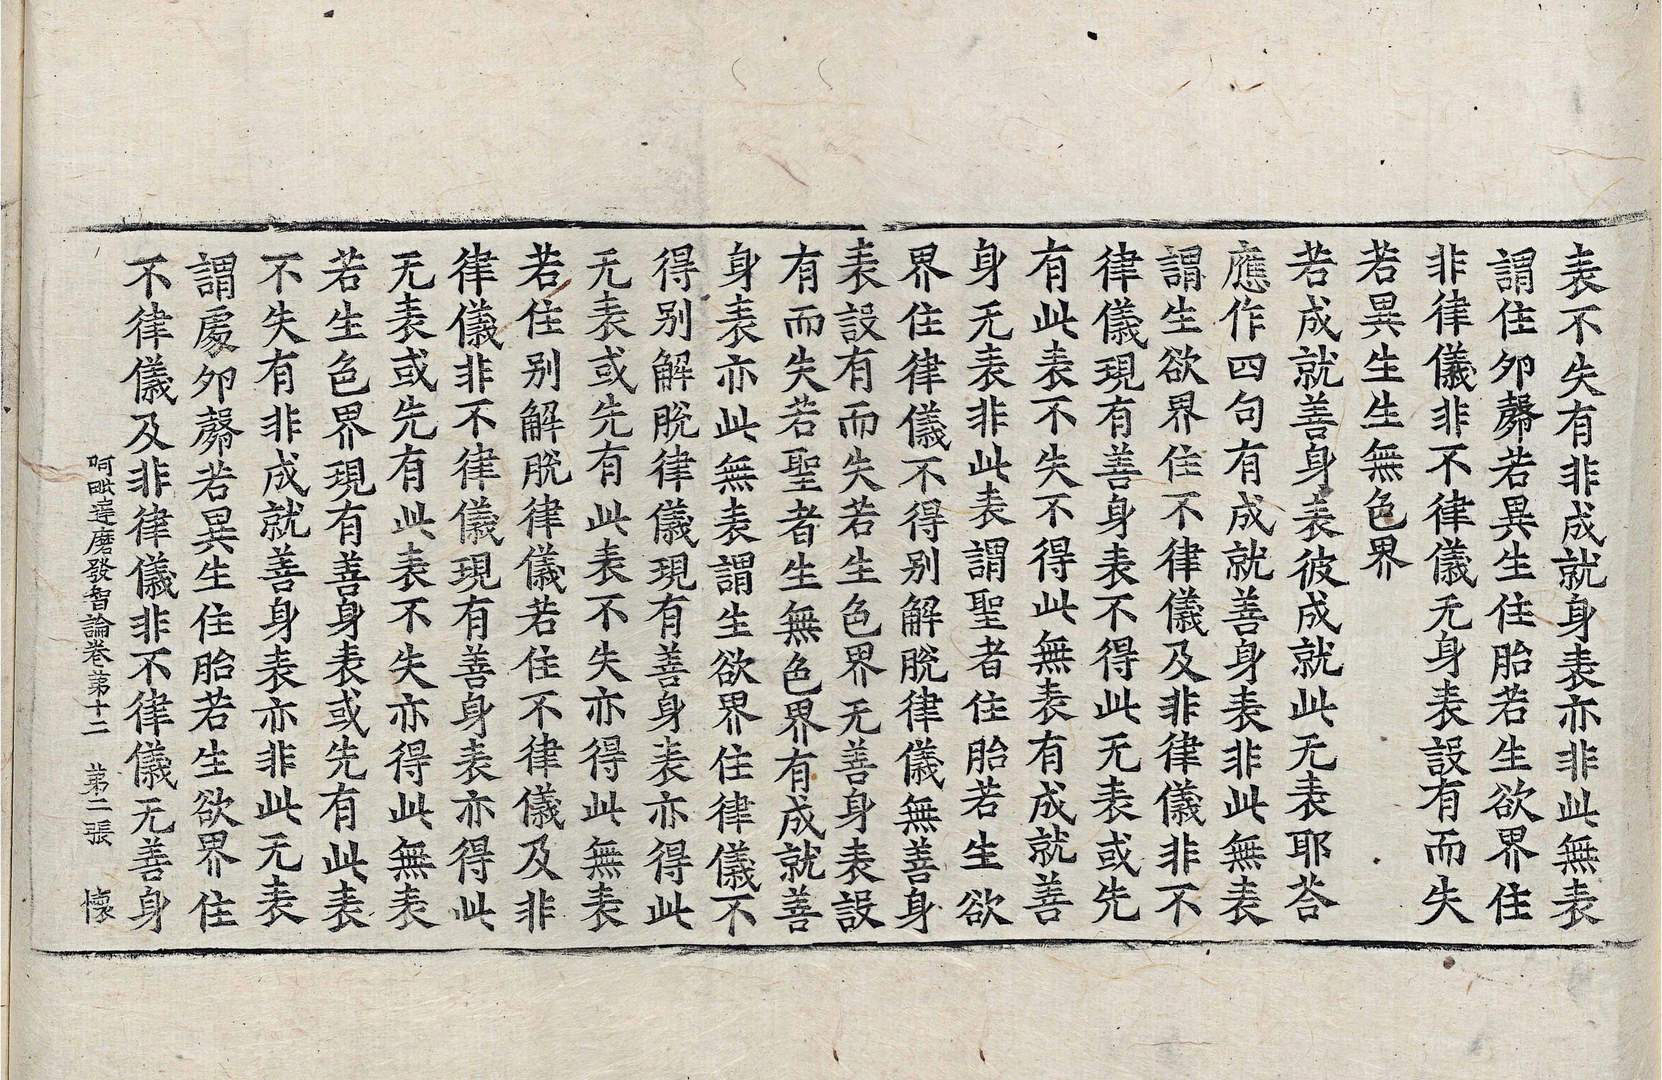 表不失有非成就身表亦非此無表
謂住卵㲉若異生住胎若生欲界住
非律儀非不律儀无身表設有而失
若異生生無色界
若成就善身表彼成就此无表耶荅
應作四句有成就善身表非此無表
謂生欲界住不律儀及非律儀非不
律儀現有善身表不得此无表或先
有此表不失不得此無表有成就善
身无表非此表謂聖者住胎若生欲
界住律儀不得别解脫律儀無善身
表設有而失若生色界无善身表設
有而失若聖者生無色界有成就善
身表亦此無表謂生欲界住律儀不
得别解脫律儀現有善身表亦得此
无表或先有此表不失亦得此無表
若住别解脫律儀若住不律儀及非
律儀非不律儀現有善身表亦得此
无表或先有此表不失亦得此無表
若生色界現有善身表或先有此表
不失有非成就善身表亦非此无表
謂處卵㲉若異生住胎若生欲界住
不律儀及非律儀非不律儀无善身
阿毗達磨發智論卷第十二 第二張 懷